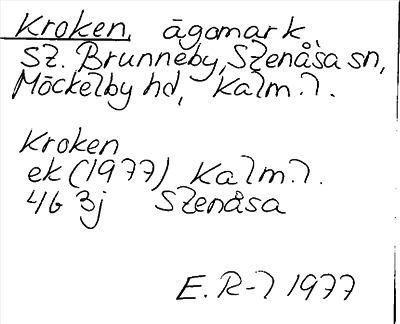 Kroken, ägomark,
St. Brunneby, Stenåsa sn,
Möckelby hd, Kalm.l.
Kroken
ek (1977) Kalm.l.
4G 3j Stenåsa
E. R-l 1977